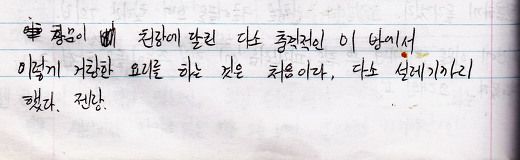 창문이 천장에 달린 다소 충격적인 이 방에서
이렇게 거창한 요리를 하는 것은 처음이다. 다소 설레기까지
했다. 젠장.